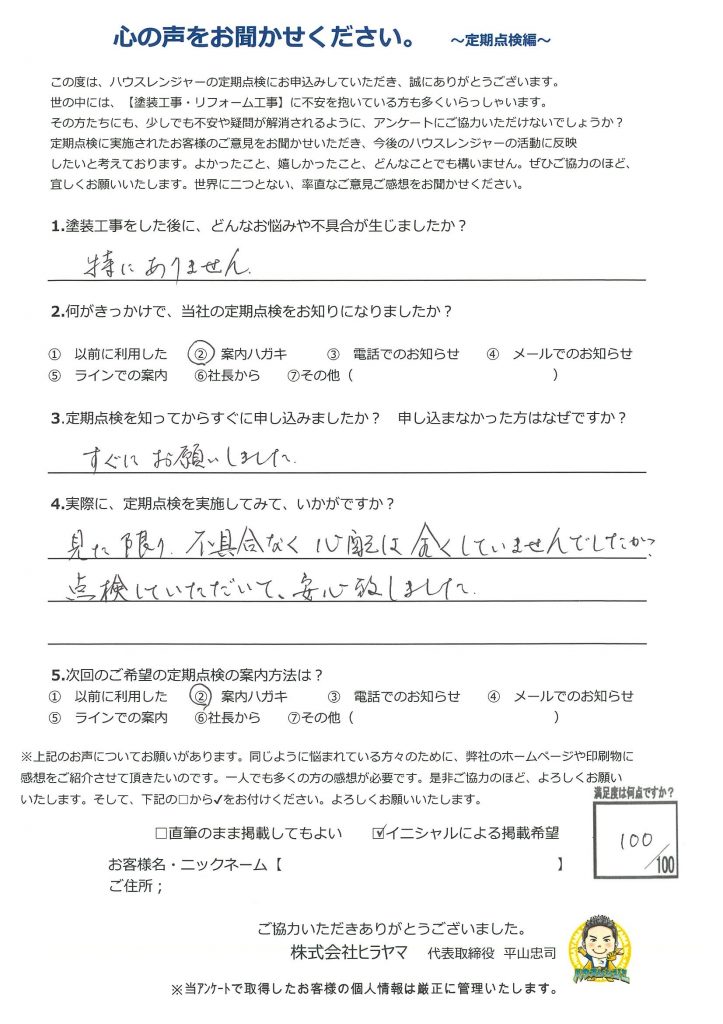 心の声をお聞かせください。 ～定期点検編～
この度は、ハウスレンジャーの定期点検にお申込みしていただき、誠にありがとうございます。
世の中には、【塗装工事・リフォーム工事】に不安を抱いている方も多くいらっしゃいます。
その方たちにも、少しでも不安や疑問が解消されるように、アンケートにご協力いただけないでしょうか？
定期点検に実施されたお客様のご意見をお聞かせいただき、今後のハウスレンジャーの活動に反映
したいと考えております。よかったこと、嬉しかったこと、どんなことでも構いません。ぜひご協力のほど、
宜しくお願いいたします。世界に二つとない、率直なご意見ご感想をお聞かせください。
1.塗装工事をした後に、どんなお悩みや不具合が生じましたか？
特にありません.
2.何がきっかけで、当社の定期点検をお知りになりましたか？
① 以前に利用した ② 案内ハガキ ③ 電話でのお知らせ ④ メールでのお知らせ
⑤ ラインでの案内 ⑥社長から ⑦その他（ ）
3.定期点検を知ってからすぐに申し込みましたか？ 申し込まなかった方はなぜですか？
すぐにお願いしました.
4.実際に、定期点検を実施してみて、いかがですか？
見た限り、不具合なく心配は全くしていませんでしたが、
点検していただいて、安心致しました.
5.次回のご希望の定期点検の案内方法は？
① 以前に利用した ② 案内ハガキ ③ 電話でのお知らせ ④ メールでのお知らせ
⑤ ラインでの案内 ⑥社長から ⑦その他（ ）
※上記のお声についてお願いがあります。同じように悩まれている方々のために、弊社のホームページや印刷物に
感想をご紹介させて頂きたいのです。一人でも多くの方の感想が必要です。是非ご協力のほど、よろしくお願い
いたします。そして、下記の□から✔をお付けください。よろしくお願いいたします。
満足度は何点ですか？
100/100
□直筆のまま掲載してもよい ☑イニシャルによる掲載希望
お客様名・ニックネーム【 】
ご住所；
ご協力いただきありがとうございました。
株式会社ヒラヤマ 代表取締役 平山忠司
※当アンケートで取得したお客様の個人情報は厳正に管理いたします。